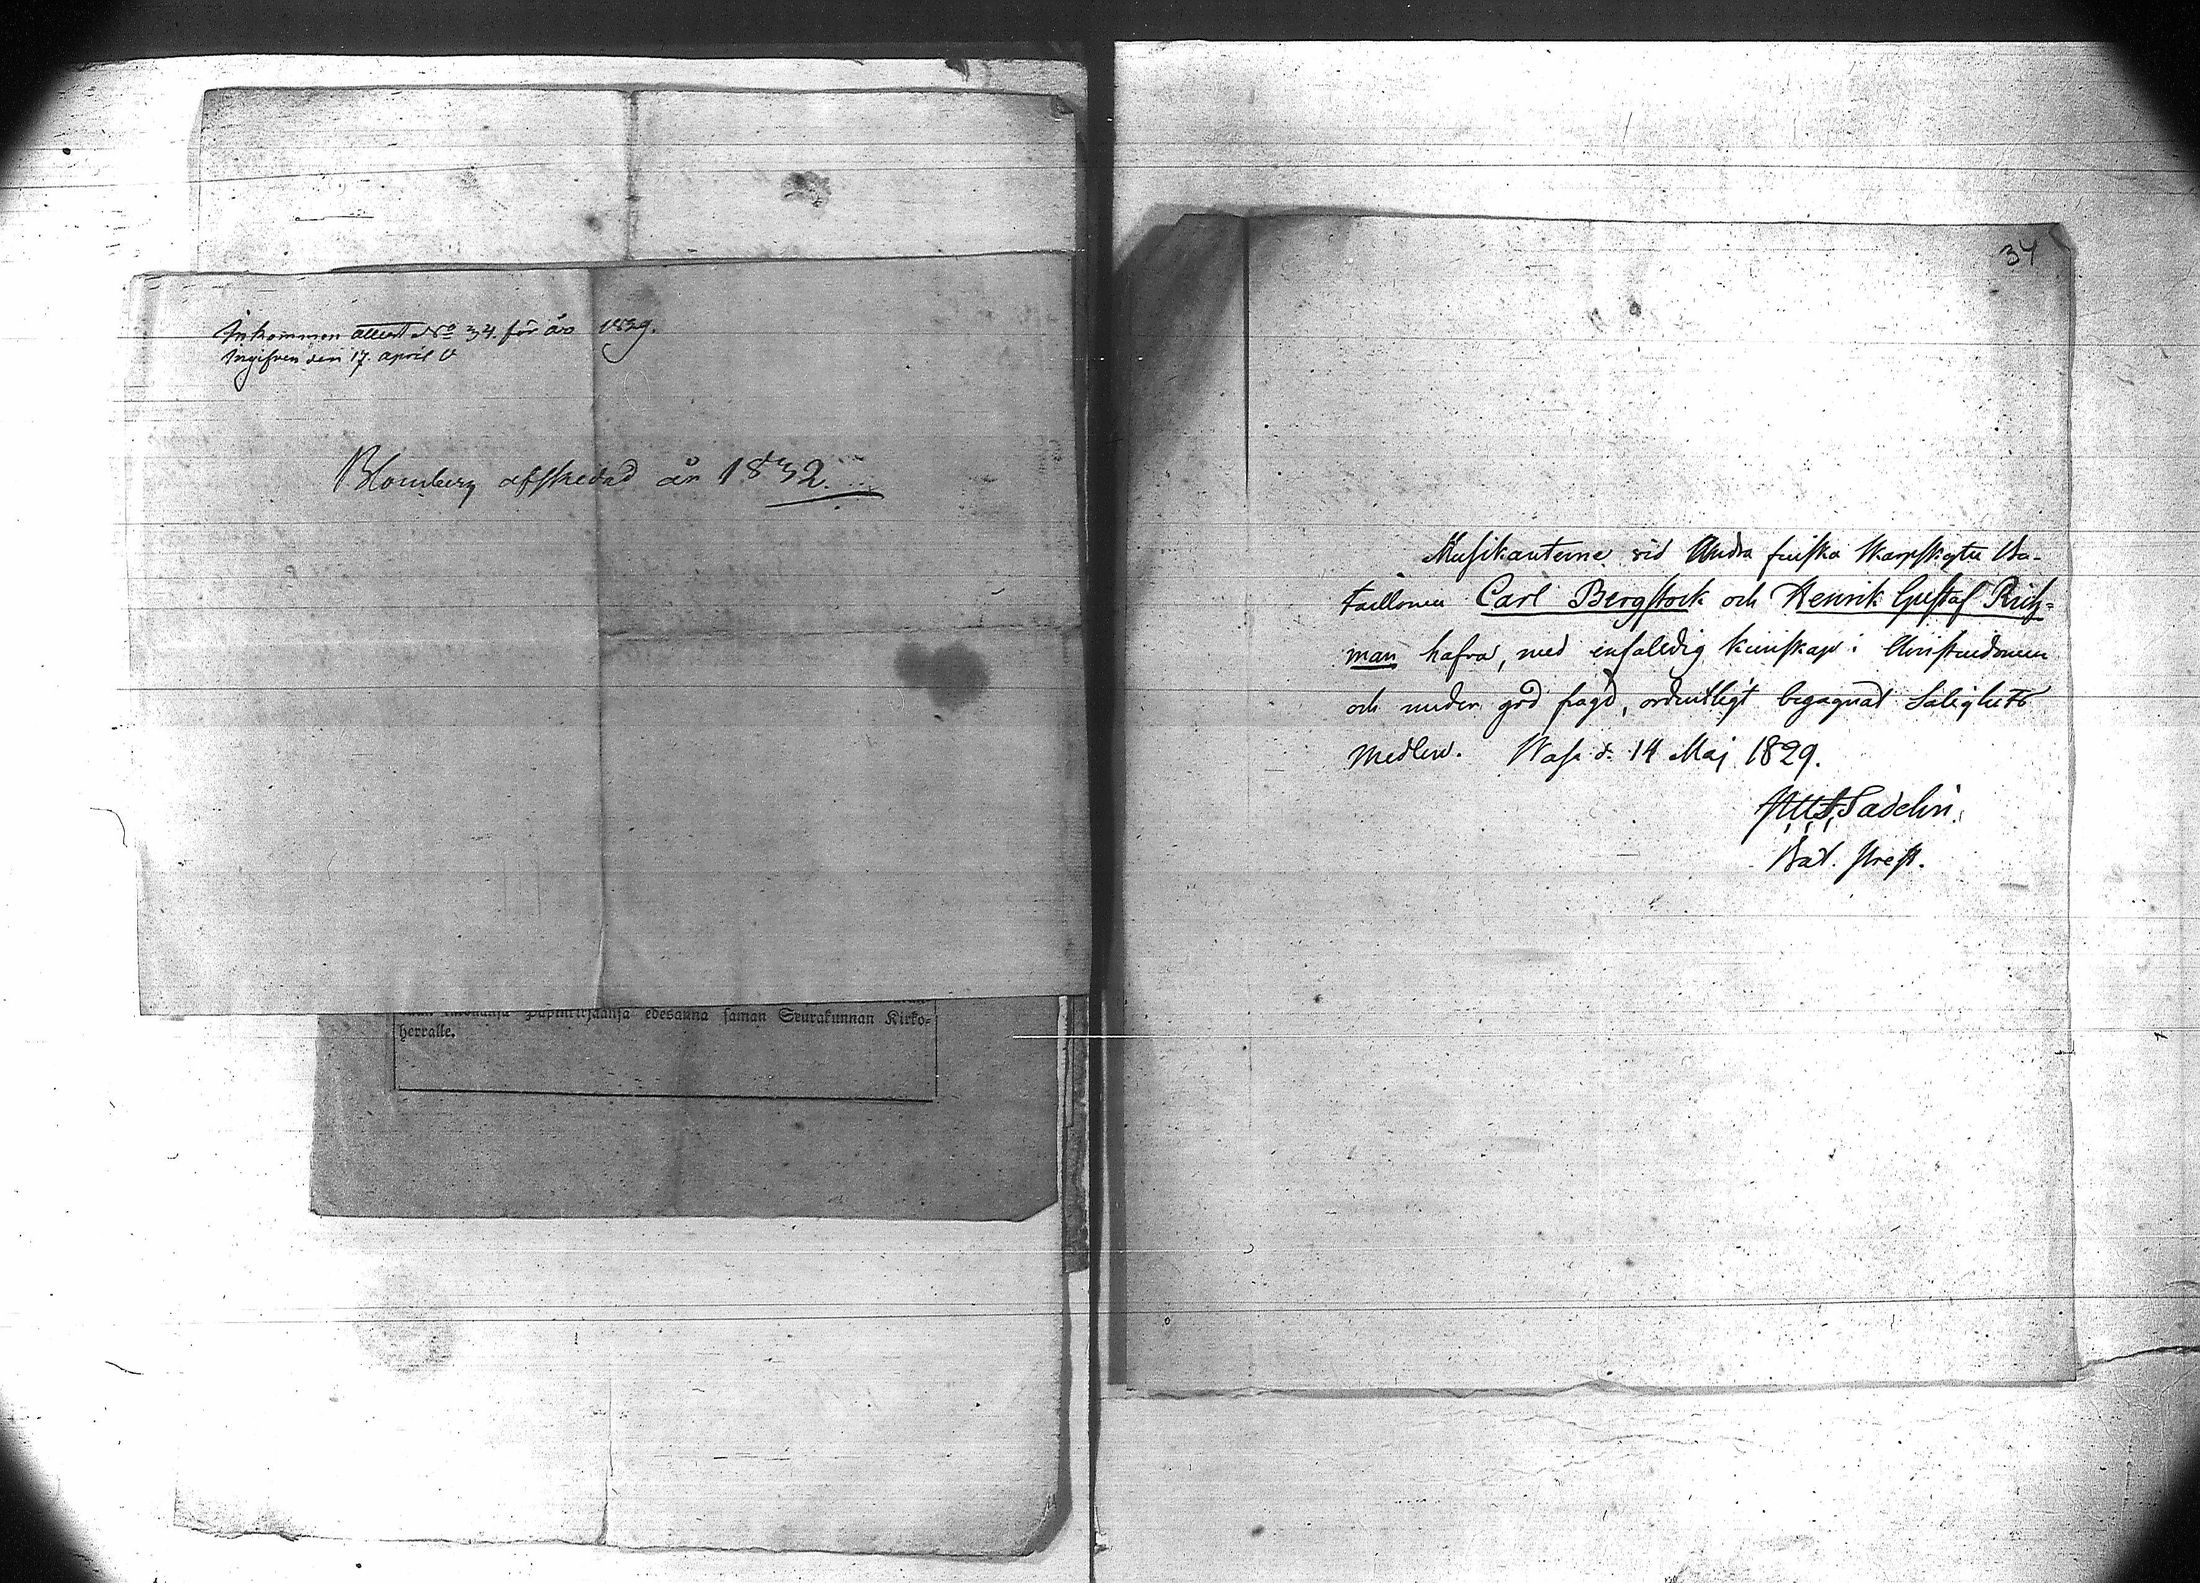 Inkommen attest No 34. för år 1839.
Ingifven den 17. april
Blomberg afskedad år 1832.
Papinkirjaansa edesanna saman Seurakunnan Kirko-
herralle.
34
Musikanterne vid Andra finska Skarpskytte Ba-
taillonen Carl Bergstock och Henrik Gustaf Ritz-
man hafva, med enfaldig kunskap i Christendomen
och under god frägd, ordentligt begagnat Salighets
Medlen. Wasa d. 14 Maj 1829.
Sadelin.
Bat. Prest.